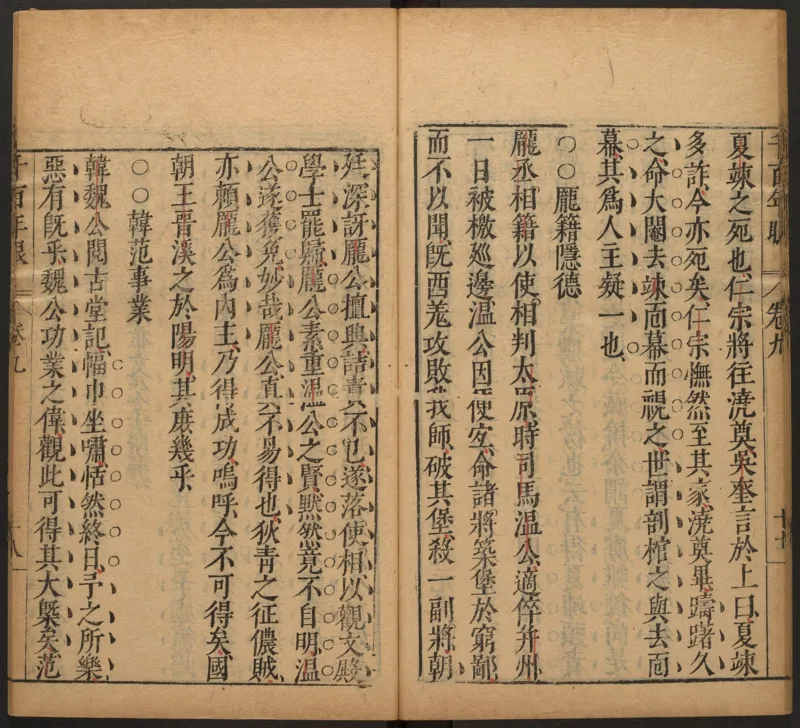 千百年眼 卷九
夏竦之死也仁宗將往澆奠吳奎言於上曰夏竦
多詐今亦死矣仁宗憮然至其家澆奠畢躊躇久
之命大閹去竦靣幕而視之世謂剖棺之與去靣
幕其爲人主疑一也
○○龎籍隱德
龎丞相籍以使相判太原時司馬溫公適倅并州
一日被檄廵邊溫公因便宐命諸將築堡於窮鄙
而不以聞旣西羗攻敗我師破其堡殺一副將朝
廷深訝龎公擅興詰責不已遂落使相以觀文殿
學士罷歸龎公素重溫公之賢黙然竟不自明溫
公遂獲免妙哉龎公真不易得也狄青之征儂賊
亦賴龎公爲內主乃得成功嗚呼今不可得矣國
朝王晉溪之於陽明其庻幾乎
○○韓范事業
韓魏公閱古堂記幅巾坐嘯恬然終日予之所樂
惡有旣乎魏公功業之偉觀此可得其大槩矣范
千百年眼 卷九 十八